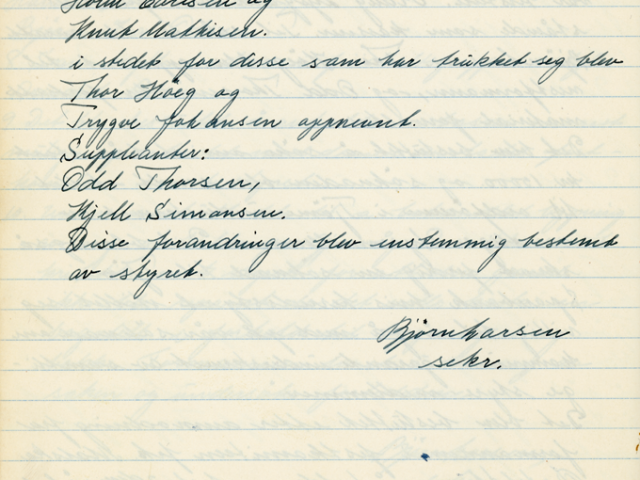 og
Knut Mathisen.
i stedet for disse som har trukket seg blev
Thor Höeg og
Trygve Johansen oppnevnt.
Suppleanter:
Odd Thorsen,
Kjell Simonsen.
Disse forandringer blev enstemmig bestemt
av styret.
Björn Larsen
sekr.